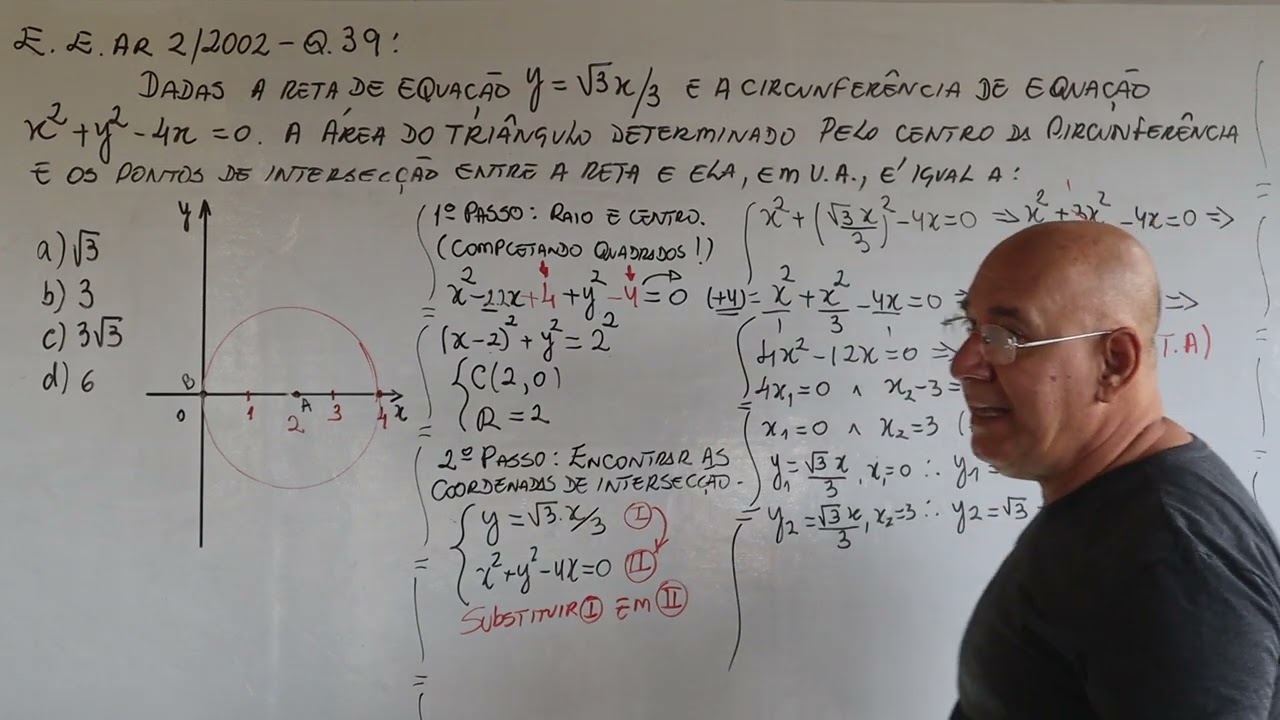 E. E. AR 2/2002 – Q.39:
DADAS A RETA DE EQUAÇÃO y = √3x/3 E A CIRCUNFERÊNCIA DE EQUAÇÃO
x² + y² - 4x = 0. A ÁREA DO TRIÂNGULO DETERMINADO PELO CENTRO DA CIRCUNFERÊNCIA
E OS PONTOS DE INTERSECÇÃO ENTRE A RETA E ELA, EM U.A., É IGUAL A:
a) √3
b) 3
c) 3√3
d) 6
y
B
0 1 2 A 3 4 x
1º PASSO: RAIO E CENTRO.
(COMPLETANDO QUADRADOS!)
= x² - 2.2x + 4 + y² - 4 = 0 (+4) =
(x-2)² + y² = 2²
C(2,0)
R = 2
2º PASSO: ENCONTRAR AS
COORDENADAS DE INTERSECÇÃO.
y = √3.x/3 I
x² + y² - 4x = 0 II
SUBSTITUIR I EM II
x² + (√3x/3)² - 4x = 0 ⇒ x² + 3x² - 4x = 0 ⇒
x²/1 + x²/3 - 4x/1 = 0 ⇒
4x² - 12x = 0 ⇒ T.A)
4x₁ = 0 ∧ x₂ - 3 =
x₁ = 0 ∧ x₂ = 3
y₁ = √3x/3, x₁ = 0 ∴ y₁ =
y₂ = √3x/3, x₂ = 3 ∴ y₂ = √3